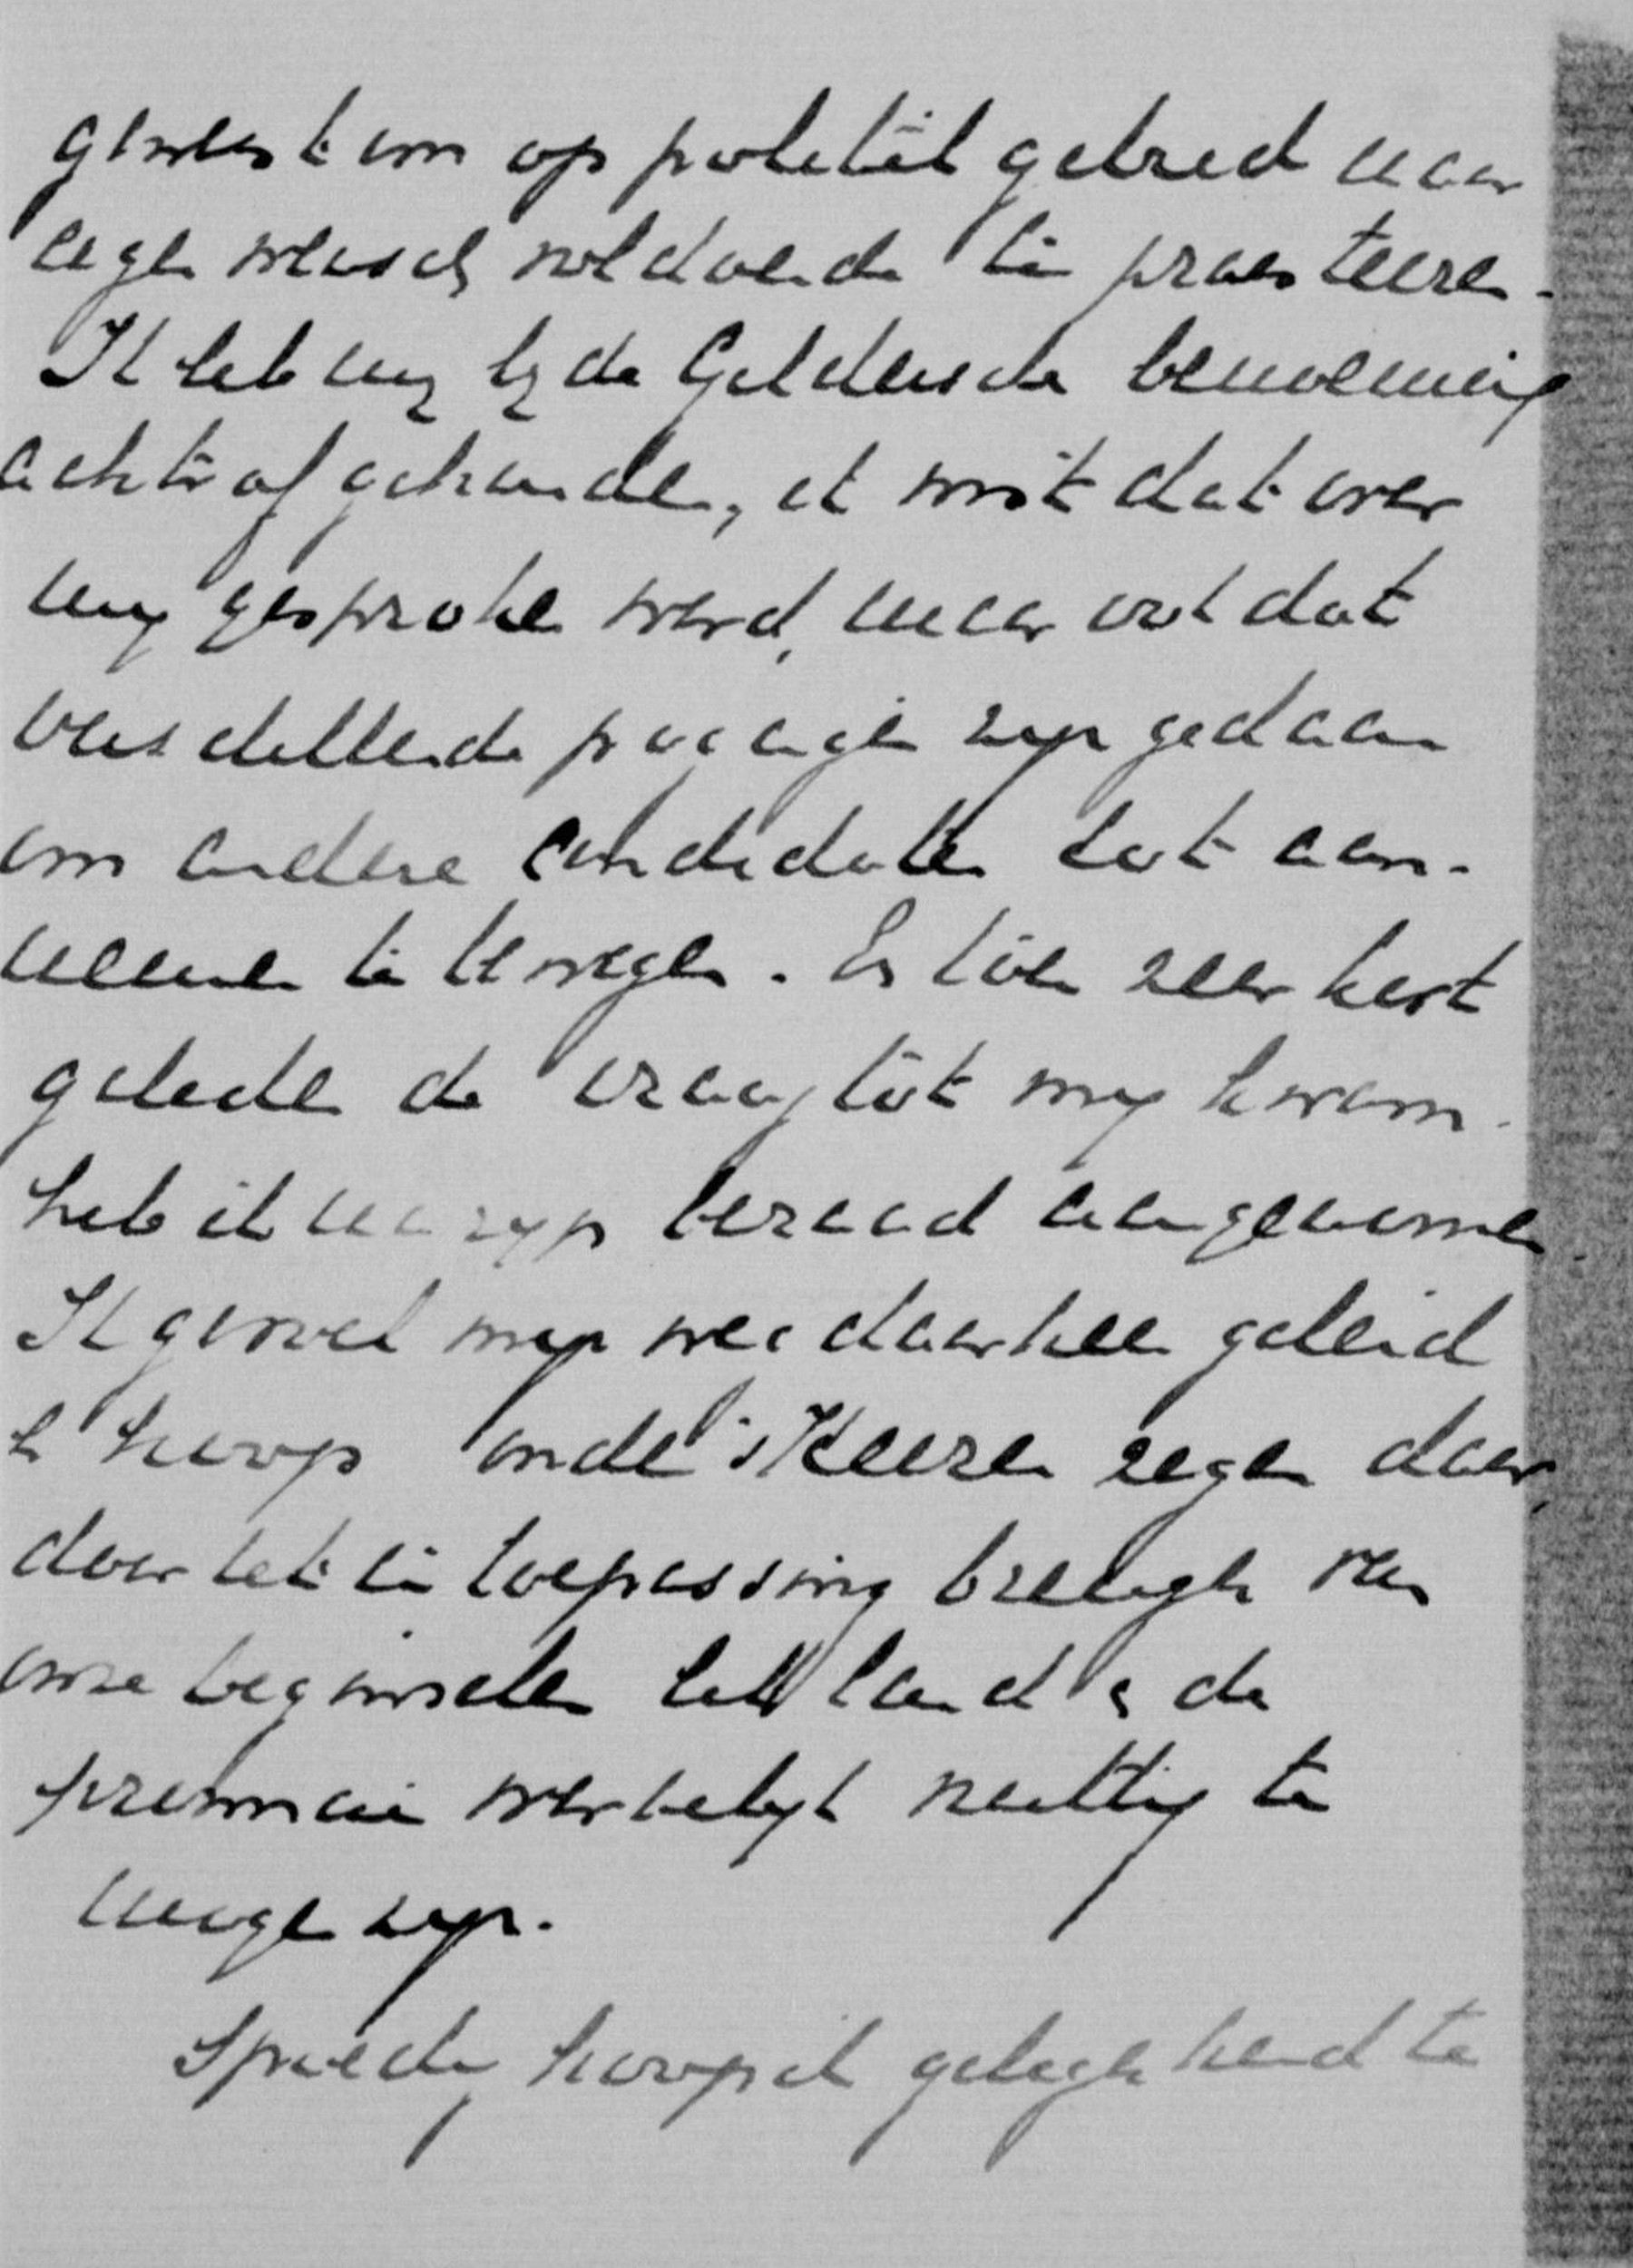 geweest om op politiek gebied naar
eigen wensch voldoende te praesteeren.
Ik heb mij bij de Geldersche benoeming
achteraf gehouden, ik wist dat over
mij gesproken werd, maar ook dat
verschillende pogingen zijn gedaan
om andere candidaten tot aan-
nemen te bewegen. En toen zeer kort
geleden de vraag tot mij kwam
heb ik na rijp beraad aangenomen.
Ik gevoel mijn weg daarheen geleid
en hoop onder 's Heeren zegen daar,
door het in toepassing brengen van
onze beginselen het land en de
provincie werkelijk nuttig te
mogen zijn.
Spoedig hoop ik gelegenheid te